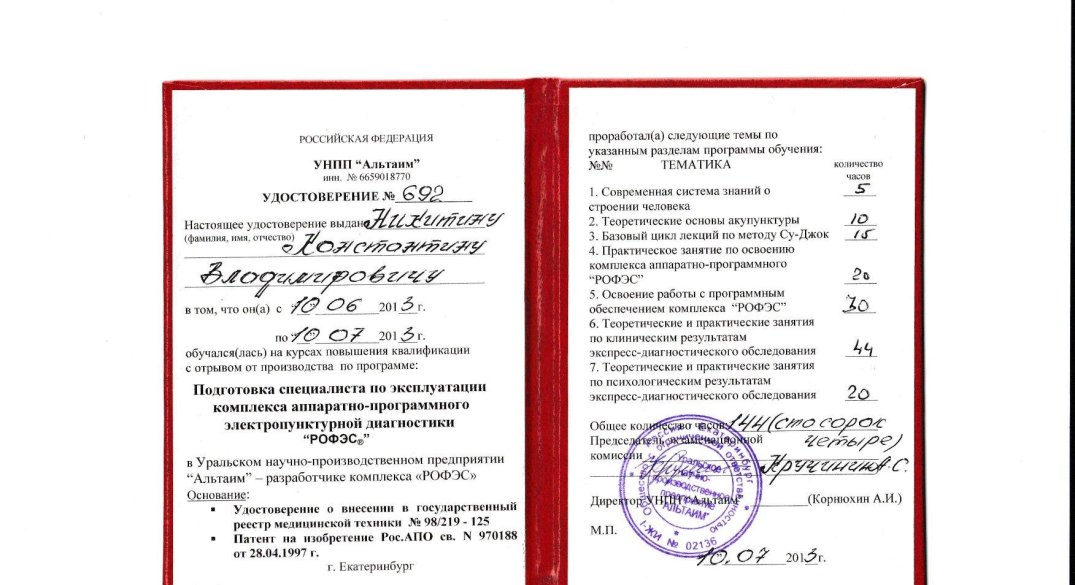 РОССИЙСКАЯ ФЕДЕРАЦИЯ
УНПП “Альтаим”
инн. № 6659018770
УДОСТОВЕРЕНИЕ № 692
Настоящее удостоверение выдано Никитину
(фамилия, имя, отчество) Константину
Владимировичу
в том, что он(а) с 10 06 2013 г.
по 10 07 2013 г.
обучался(лась) на курсах повышения квалификации
с отрывом от производства по программе:
Подготовка специалиста по эксплуатации
комплекса аппаратно-программного
электропунктурной диагностики
“РОФЭС®”
в Уральском научно-производственном предприятии
“Альтаим” – разработчике комплекса «РОФЭС»
Основание:
▪ Удостоверение о внесении в государственный
реестр медицинской техники № 98/219 - 125
▪ Патент на изобретение Рос.АПО св. N 970188
от 28.04.1997 г.
г. Екатеринбург
проработал(а) следующие темы по
указанным разделам программы обучения:
№№ ТЕМАТИКА количество
часов
1. Современная система знаний о 5
строении человека
2. Теоретические основы акупунктуры 10
3. Базовый цикл лекций по методу Су-Джок 15
4. Практическое занятие по освоению
комплекса аппаратно-программного
“РОФЭС” 20
5. Освоение работы с программным
обеспечением комплекса “РОФЭС” 30
6. Теоретические и практические занятия
по клиническим результатам
экспресс-диагностического обследования 44
7. Теоретические и практические занятия
по психологическим результатам
экспресс-диагностического обследования 20
Общее количество часов: 144 (сто сорок
Председатель экзаменационной четыре)
комиссии Кручинин А.С.
Директор УНПП “Альтаим” (Корнюхин А.И.)
М.П.
10.07 2013г.
Россия г. Екатеринбург
ограниченной ответственностью
Уральское
научно-
производственное
предприятие
"АЛЬТАИМ"
№ 02136 I-ЖИ